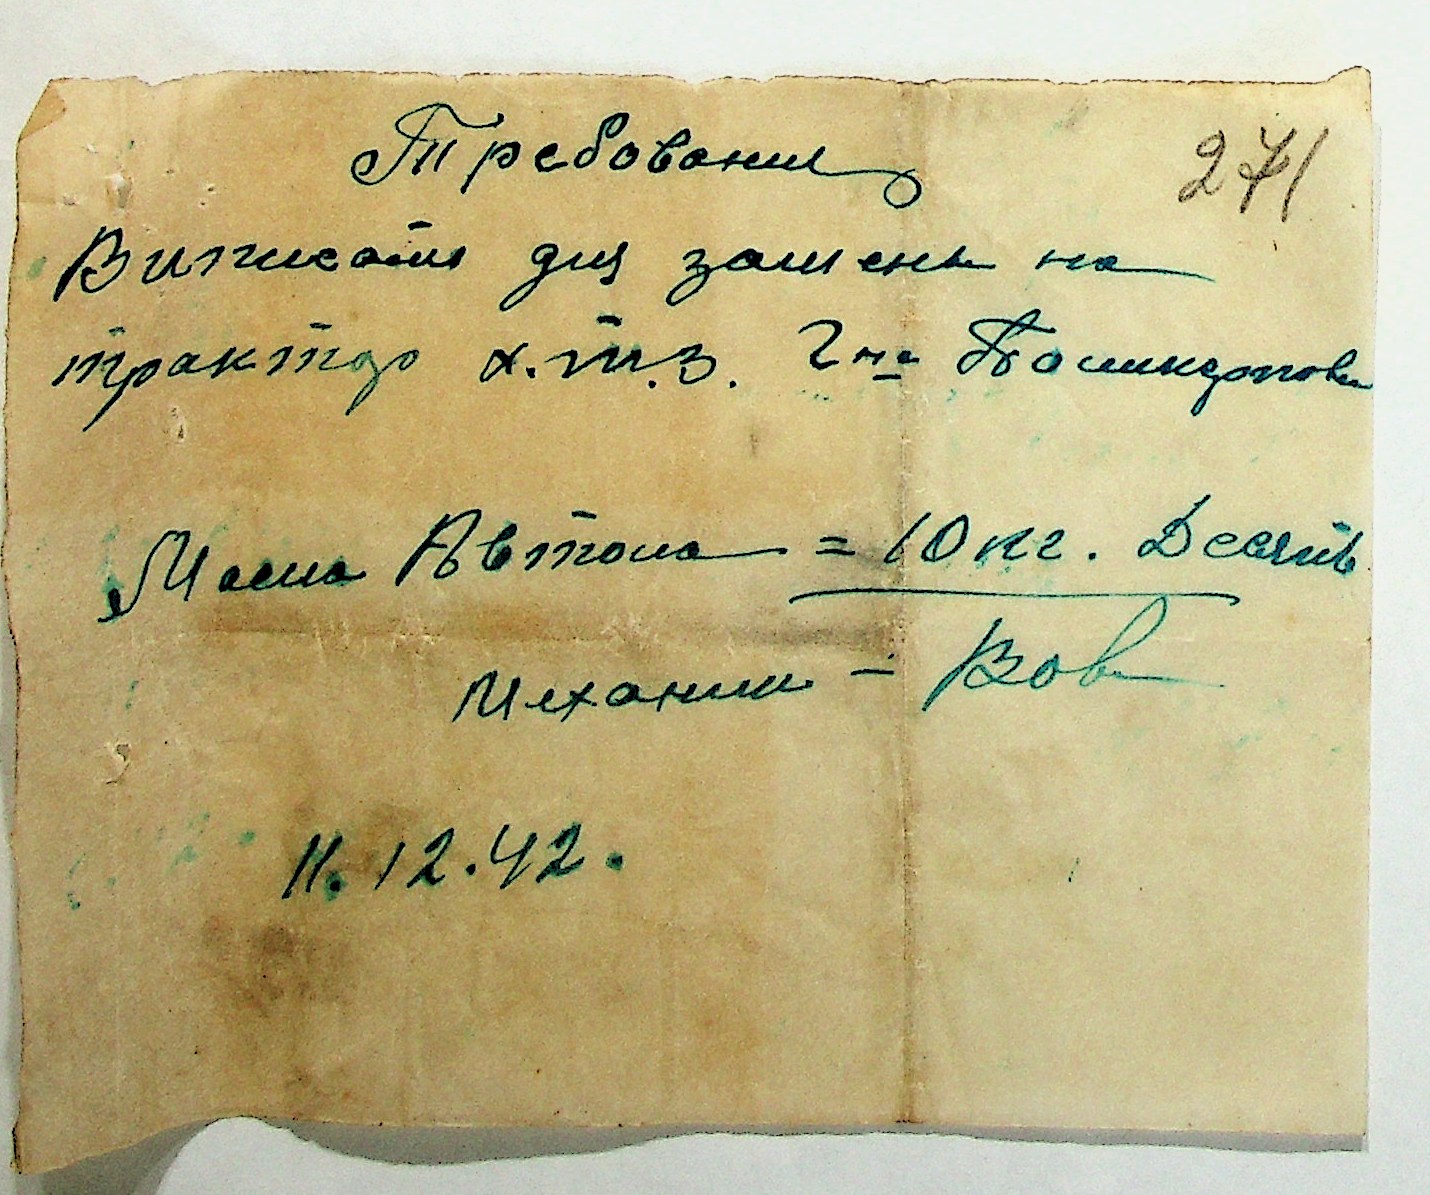 Требования
271
Виписать для замены на
трактор х.т.з. 2 на Поликарпова
Масла Автола = 10 кг. Десять
Механик –
11.12.42.